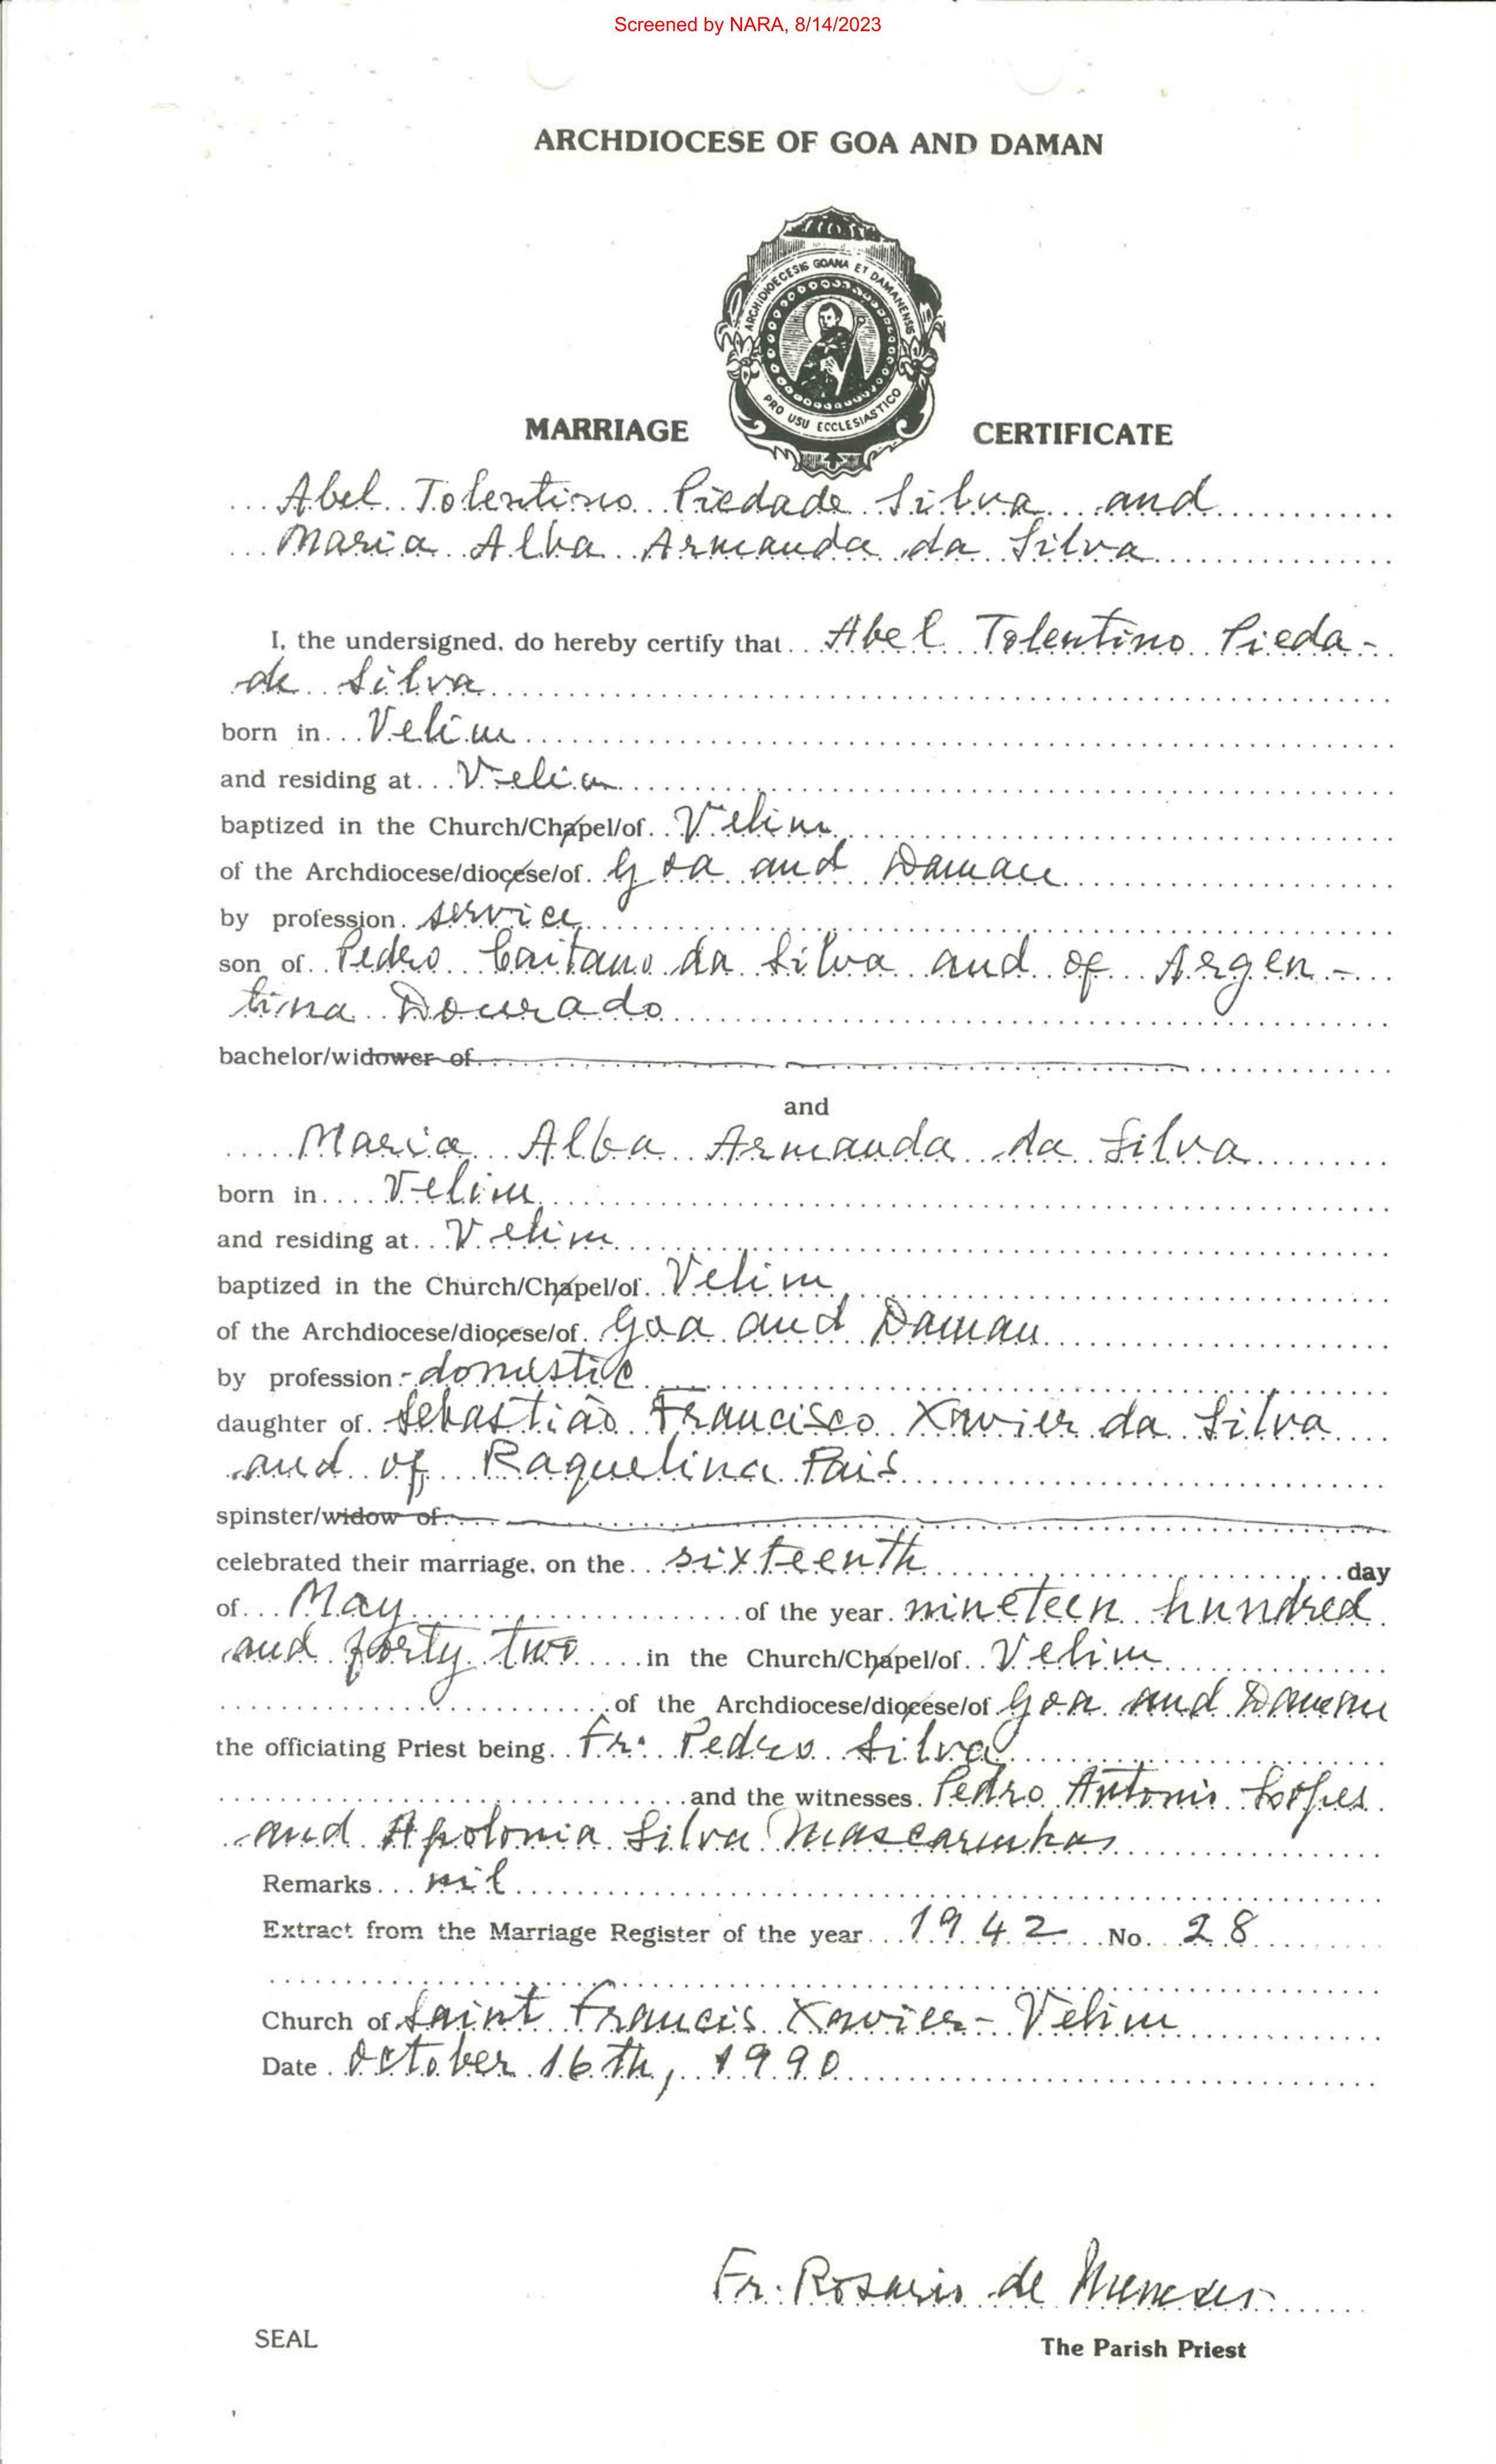 Screened by NARA, 8/14/2023
ARCHDIOCESE OF GOA AND DAMAN
ARCHIDIOECESIS GOANA ET DAMANENSIS
PRO USU ECCLESIASTICO
MARRIAGE CERTIFICATE
Abel Tolentino Piedade Silva and
Maria Alba Armanda da Silva
I, the undersigned, do hereby certify that Abel Tolentino Pieda-
de Silva
born in Velim
and residing at Velim
baptized in the Church/Chapel/of Velim
of the Archdiocese/diocese/of Goa and Daman
by profession service
son of Pedro Caitano da Silva and of Argen-
tina Dourado
bachelor/widower of
and
Maria Alba Armanda da Silva
born in Velim
and residing at Velim
baptized in the Church/Chapel/of Velim
of the Archdiocese/diocese/of Goa and Daman
by profession - domestic
daughter of Sebastião Francisco Xavier da Silva
and of Raquelina Pais
spinster/widow of
celebrated their marriage, on the sixteenth day
of May of the year nineteen hundred
and forty two in the Church/Chapel/of Velim
of the Archdiocese/diocese/of Goa and Daman
the officiating Priest being Fr. Pedro Silva
and the witnesses Pedro Antonio Lopes
and Apolonia Silva Mascarenhas
Remarks nil
Extract from the Marriage Register of the year 1942 No. 28
Church of Saint Francis Xavier - Velim
Date October 16th, 1990
Fr. Rosario de Menezes
SEAL
The Parish Priest